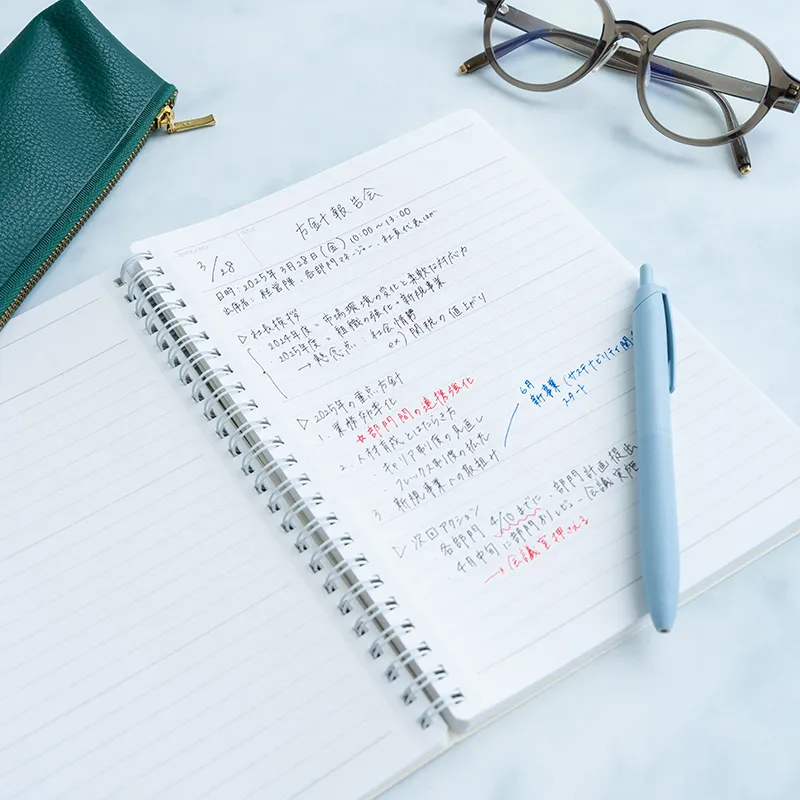 方針報告会
3/28
日時:2025年3月28日(金)10:00〜13:00
出席者:経営陣、各部門マネージャー、社員代表ほか
▷社長挨拶
2024年度:市場環境の変化と柔軟な対応力
2025年度:組織の強化・新規事業
→懸念点:社会情勢
ex) 関税の値上がり
▷2025年の重点方針
1. 業務効率化
☆部門間の連携強化
2. 人材育成とはたらき方
・キャリア制度の見直し
・フレックス制度の拡充
3 新規事業への取組み
6月
新事業(サステナビリティ関
スタート
▷次回アクション
各部門 4/10までに、部門計画提出
4月中旬に部門別レビュー会議実施
→会議室押さえる